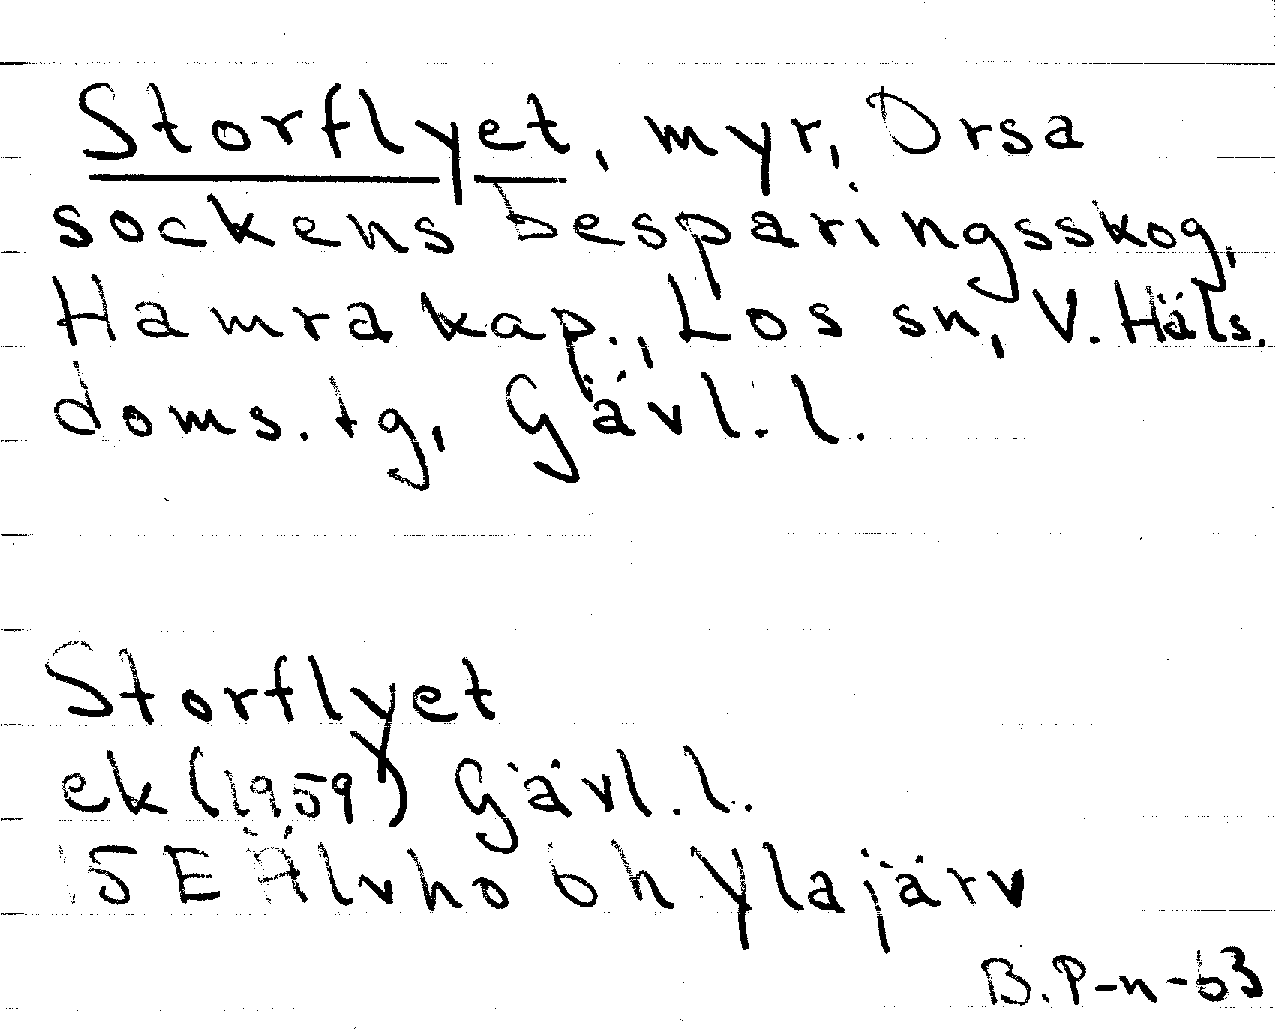 Storflyet, myr, Orsa
sockens besparingsskog,
Hamra kap., Los sn, V. Häls.
doms. tg, Gävl. l.
Storflyet
ek (1959) Gävl. l.
15 E Älvho 6 h Ylajärv
B. P-n -63